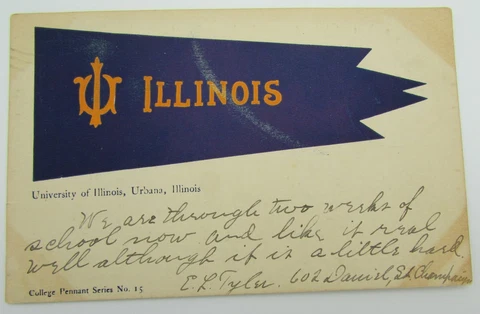 UI ILLINOIS
University of Illinois, Urbana, Illinois
We are through two weeks of
school now and like it real
well although it is a little hard.
E.L. Tyler. 602 Daniel, St. Champaign
College Pennant Series No. 15